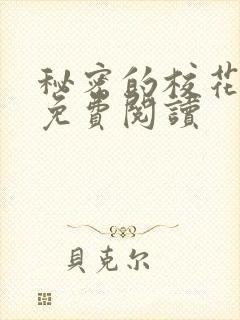 秘密的校花
免費閱讀
貝克尔